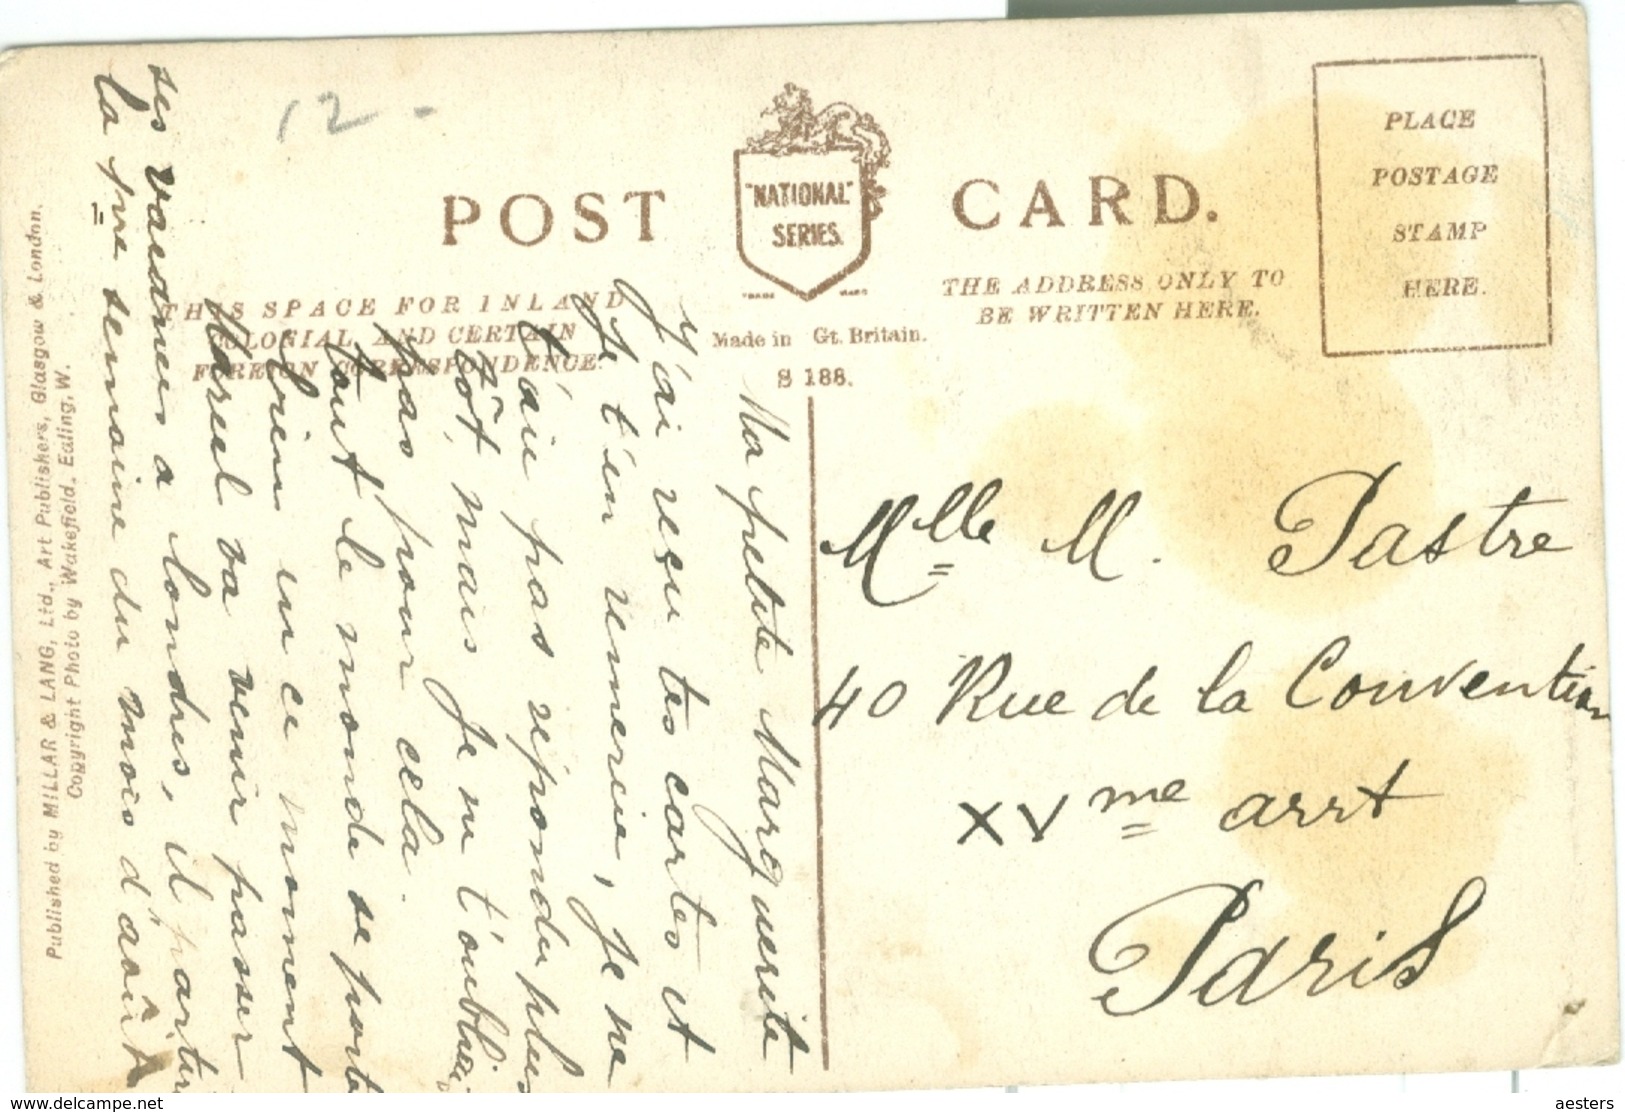 12-
POST CARD.
"NATIONAL"
SERIES.
TRADE MARK
THIS SPACE FOR INLAND
COLONIAL AND CERTAIN
FOREIGN CORRESPONDENCE.
Made in Gt. Britain.
S 188.
THE ADDRESS ONLY TO
BE WRITTEN HERE.
PLACE
POSTAGE
STAMP
HERE.
Ma petite Marguerite
J'ai reçu tes cartes et
je t'en remercie, je ne
t'aie pas répondu plus
tôt, mais je ne t'oubliai
pas pour cela.
tout le monde se porte
bien en ce moment
Marcel va venir passer
ses vacances a Londres, il partira
la 1re semaine du mois d'août
Mlle M. Pastre
40 Rue de la Convention
XVme arrt
Paris
Published by MILLAR & LANG, Ltd., Art Publishers, Glasgow & London.
Copyright Photo by Wakefield, Ealing, W.
delcampe.net
aesters